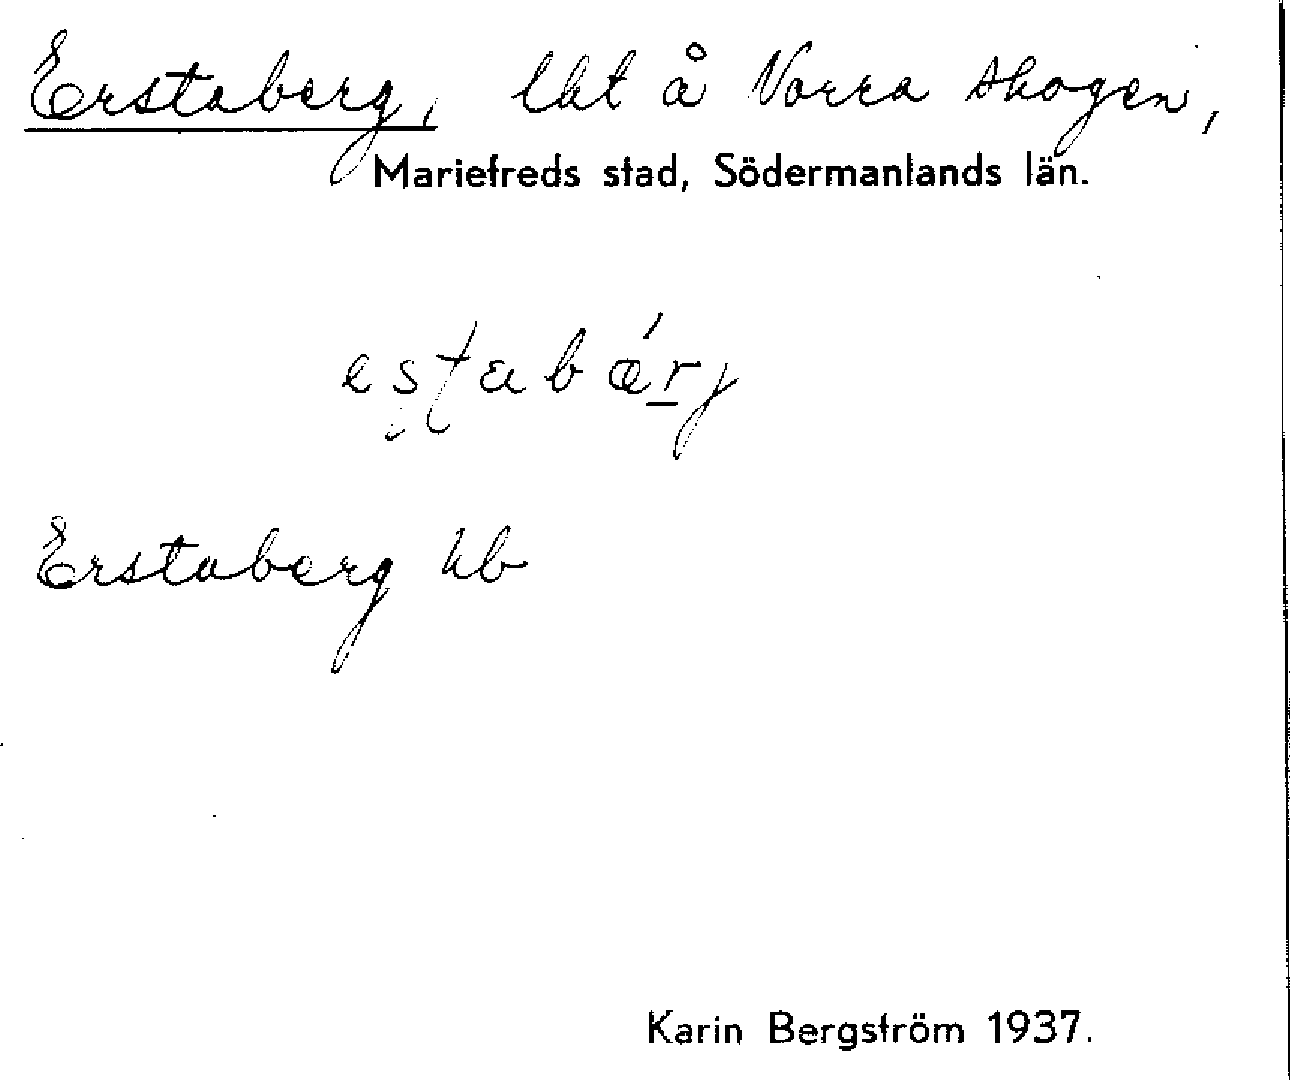 Erstaberg, lht å Norra skogen,
Mariefreds stad, Södermanlands län.
estabǽrj
Erstaberg hb
Karin Bergström 1937.